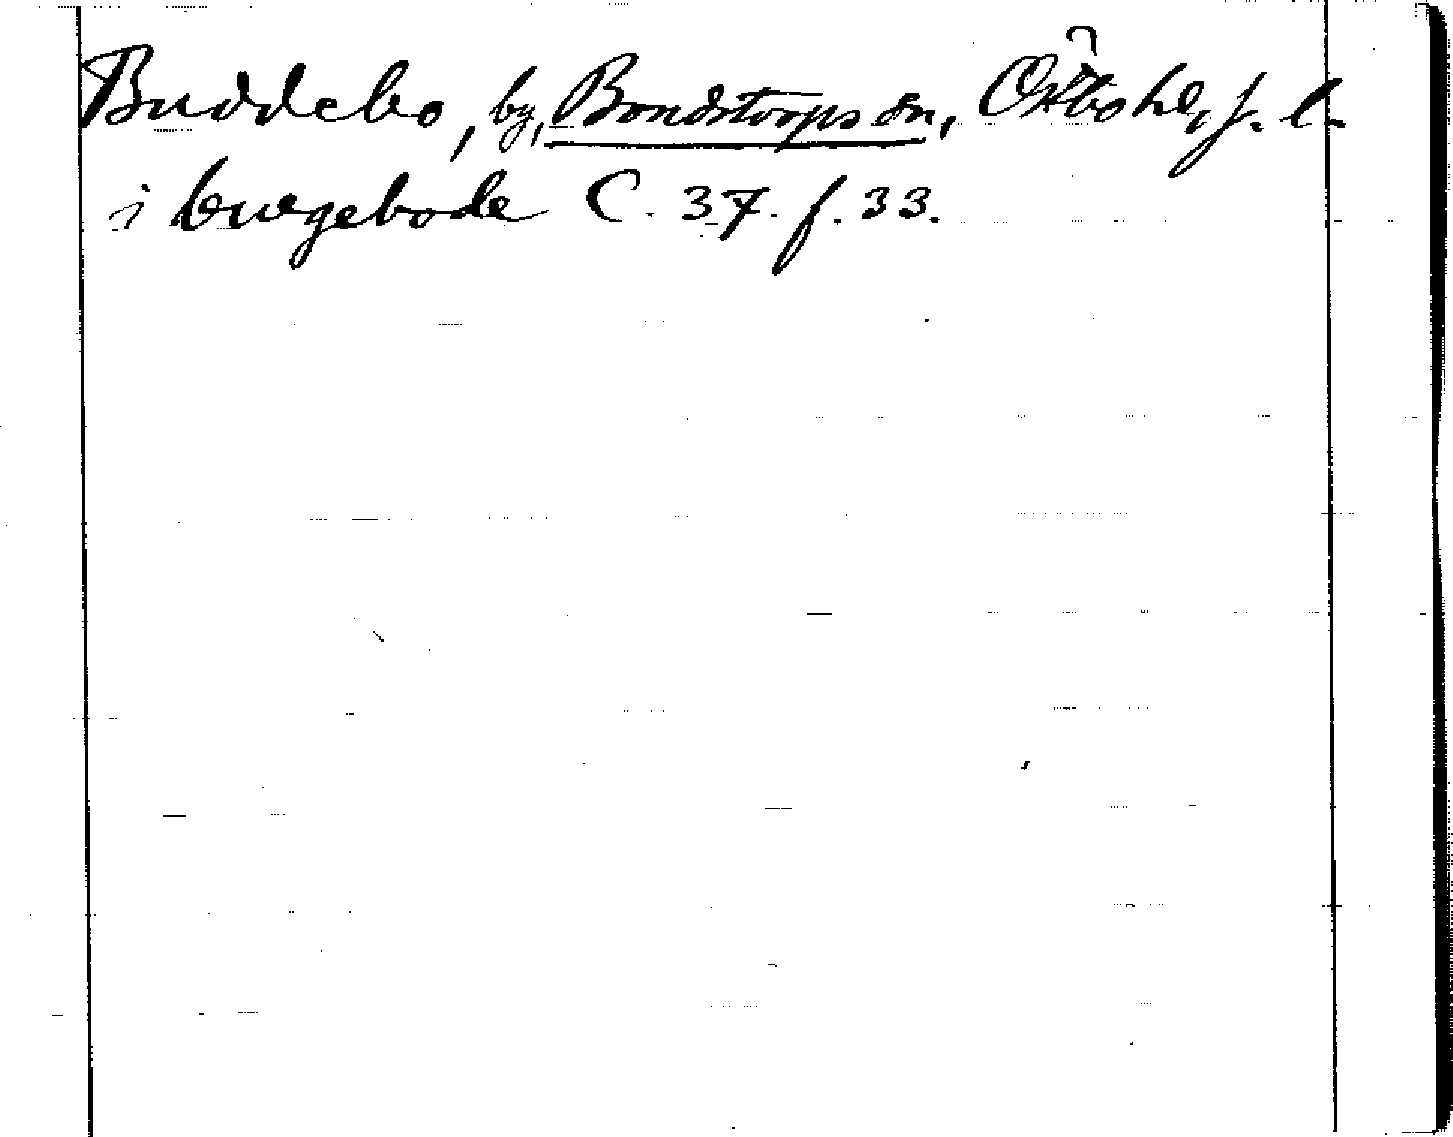 Buddebo, by, Bondstorps sn, Östbo hd, J. l.
i buegebode C. 37. f. 33.